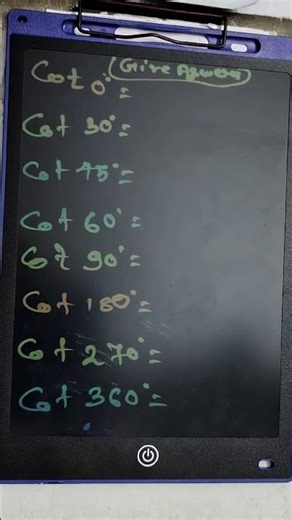 Cot 0°= (Give Answer)
Cot 30°=
Cot 45°=
Cot 60°=
Cot 90°=
Cot 180°=
Cot 270°=
Cot 360°=